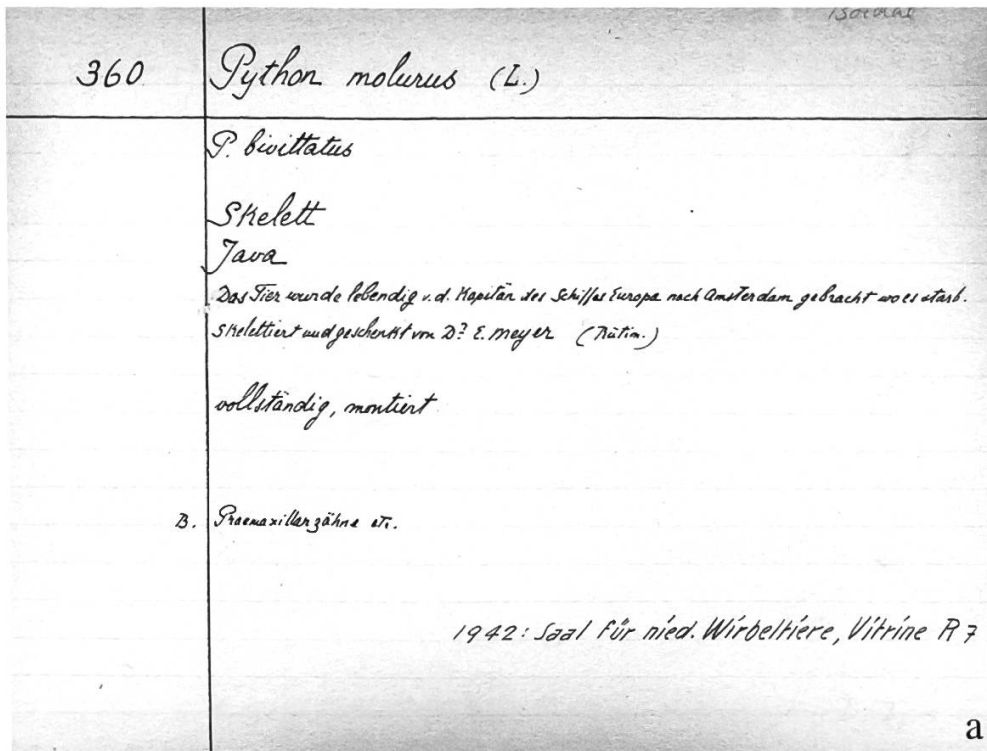 Boidae
360 Python molurus (L.)
P. bivittatus
Skelett
Java
Das Tier wurde lebendig v. d. Kapitän des Schiffes Europa nach Amsterdam gebracht wo es starb.
Skelettiert und geschenkt von Dr. E. Meyer (Rütim.)
vollständig, montiert
B. Praemaxillarzähne etc.
1942: Saal für nied. Wirbeltiere, Vitrine R 7
a